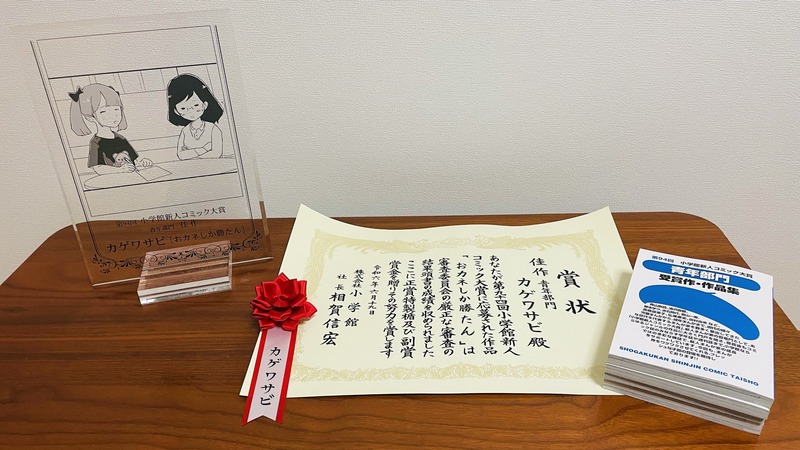 第94回 小学館新人コミック大賞
青年部門 佳作
カゲワサビ「おカネしか勝たん」
賞状
佳作 青年部門
カゲワサビ殿
あなたが第九十四回小学館新人
コミック大賞に応募された作品
「おカネしか勝たん」は
審査委員会の厳正な審査の
結果頭書の成績を収められました
ここに正賞特製楯及び副賞
賞金を贈りその努力を賞します
令和六年六月十九日
株式会社 小学館
社長 相賀信宏
カゲワサビ
第94回 小学館新人コミック大賞
青年部門
受賞作・作品集
SHOGAKUKAN SHINJIN COMIC TAISHO